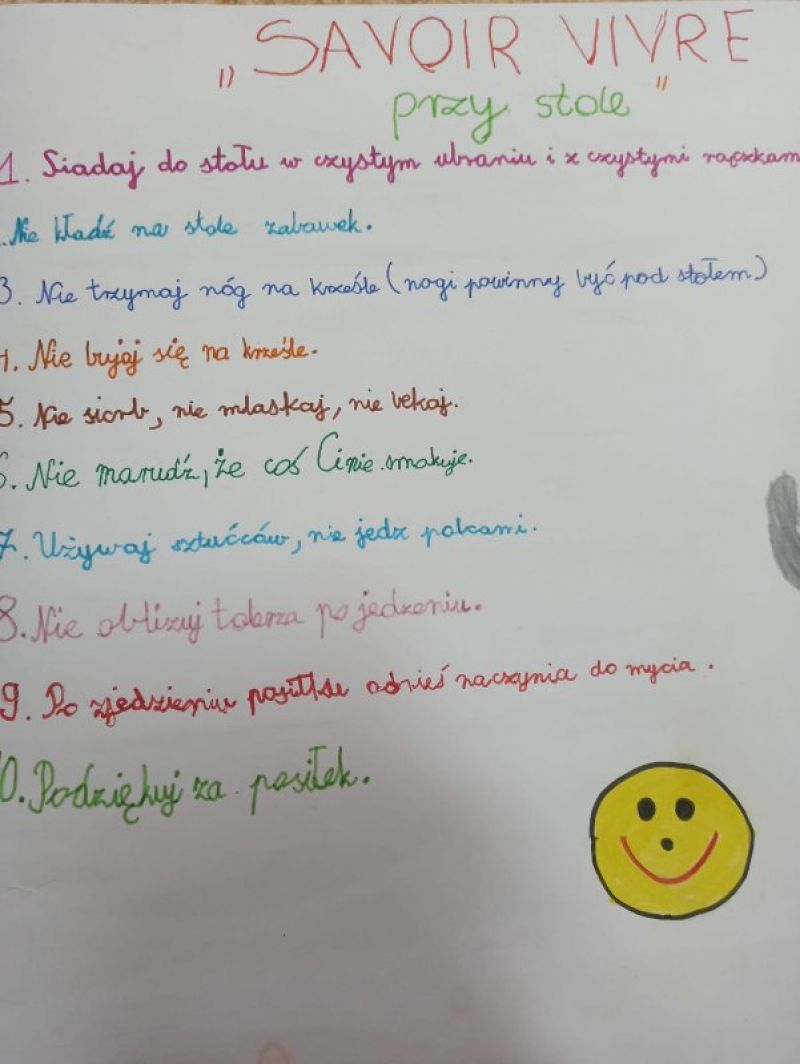 „SAVOIR VIVRE
przy stole"
1. Siadaj do stołu w czystym ubraniu i z czystymi rączkam
. Nie kładź na stole zabawek.
3. Nie trzymaj nóg na krześle (nogi powinny być pod stołem)
4. Nie bujaj się na krześle.
5. Nie siorb, nie mlaskaj, nie bekaj.
6. Nie marudź, że coś Ci nie smakuje.
7. Używaj sztućców, nie jedz palcami.
8. Nie oblizuj talerza po jedzeniu.
9. Po zjedzieniu posiłku odnieś naczynia do mycia.
0. Podziękuj za posiłek.